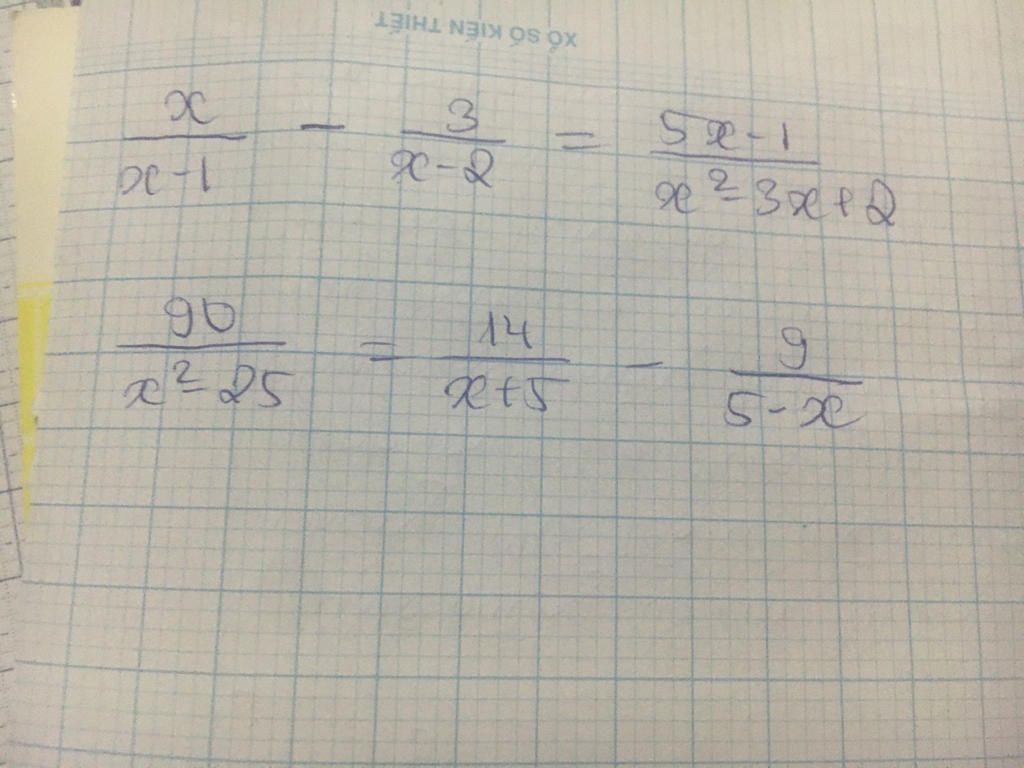 XỔ SỐ KIẾN THIẾT
x/(x-1) - 3/(x-2) = (5x-1)/(x²-3x+2)
90/(x²-25) = 14/(x+5) - 9/(5-x)